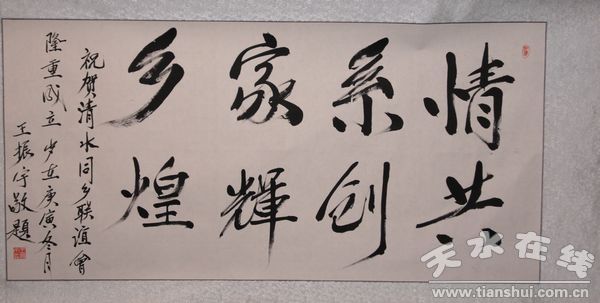 情系家乡
共创輝煌
祝贺清水同乡联谊會
隆重成立岁在庚寅冬月
王振宇敬題
天水在线
www.tianshui.com.cn